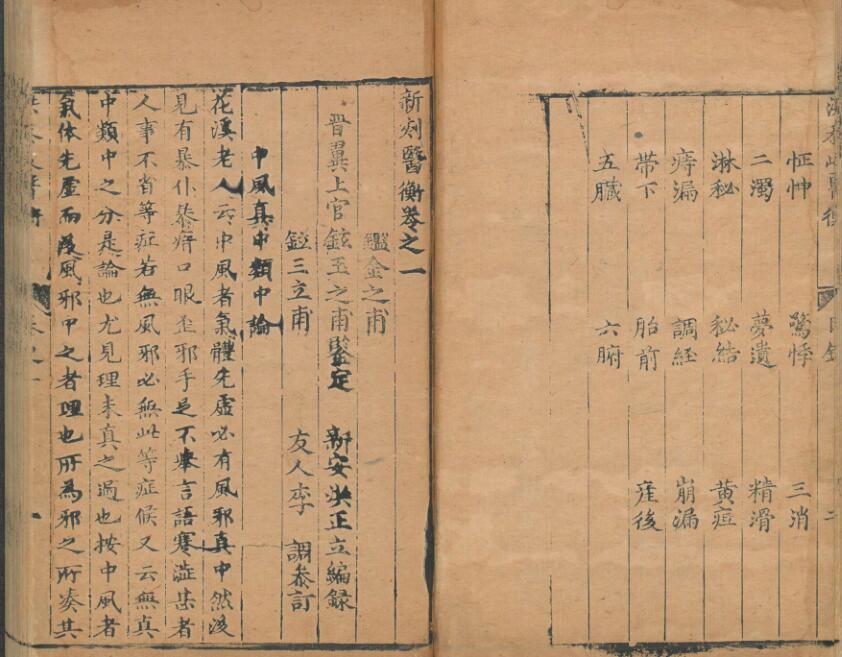 怔忡 驚悸 三消
二濁 夢遺 精滑
淋秘 秘結 黄疸
痔漏 調経 崩漏
帶下 胎前 産後
五臟 六腑
新刻醫衡卷之一
鑑金之甫
晋翼上官鉉玉之甫鑒定 新安洪正立編録
鉝三立甫 友人李 調叅訂
中風真中類中論
花溪老人云中風者氣體先虛必有風邪真中然後
見有暴仆暴瘖口眼歪邪手足不舉言語蹇澁甚者
人事不省等症若無風邪必無此等症候又云無真
中類中之分是論也尤見理未真之過也按中風者
氣体先虛而後風邪中之者理也所為邪之所凑其